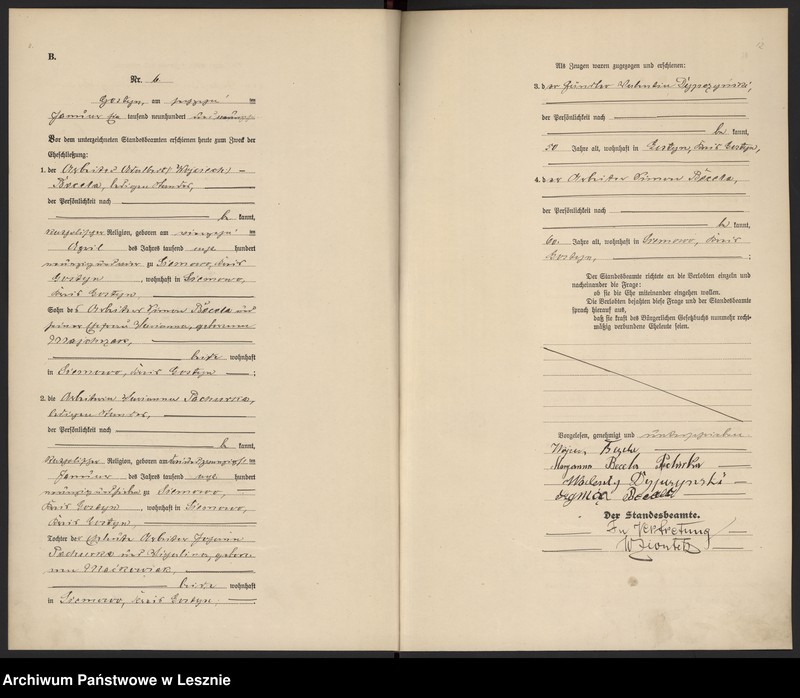 B.
Nr. 6
Gostyn, am sechszehn ten
Januar tausend neunhundert
Vor dem unterzeichneten Standesbeamten erschienen heute zum Zweck der
Eheschließung:
1. der Arbeiter Adalbert (Wojciech)
Bzcela, ledigen Standes,
der Persönlichkeit nach
be kannt,
katholischer Religion, geboren am vierzehn ten
April des Jahres tausend acht hundert
neunzig und zwei zu Siemowo, Kreis
Gostyn, wohnhaft in Siemowo,
Kreis Gostyn,
Sohn des Arbeiters Simon Bzcela und
seiner Ehefrau Marianna, geborenen
Majchrzak,
beide wohnhaft
in Siemowo, Kreis Gostyn ;
2. die Arbeiterin Marianna Pachurka,
ledigen Standes,
der Persönlichkeit nach
be kannt,
katholischer Religion, geboren am ten
Januar des Jahres tausend acht hundert
neunzig und zu Siemowo,
Kreis Gostyn, wohnhaft in Siemowo,
Kreis Gostyn,
Tochter der Eheleute Arbeiter
Pachurka und gebore-
nen Maćkowiak,
beide wohnhaft
in Siemowo, Kreis Gostyn.
Als Zeugen waren zugezogen und erschienen:
3. der Häusler Valentin
der Persönlichkeit nach
be kannt,
50 Jahre alt, wohnhaft in Gostyn, Kreis Gostyn,
4. der Arbeiter Simon Bzcela,
der Persönlichkeit nach
be kannt,
60 Jahre alt, wohnhaft in Siemowo, Kreis
Gostyn, ;
Der Standesbeamte richtete an die Verlobten einzeln und
nacheinander die Frage:
ob sie die Ehe miteinander eingehen wollen.
Die Verlobten bejahten diese Frage und der Standesbeamte
sprach hierauf aus,
daß sie kraft des Bürgerlichen Gesetzbuchs nunmehr recht-
mäßig verbundene Eheleute seien.
Vorgelesen, genehmigt und unterschrieben
Maryanna Pachurka
Walenty
Der Standesbeamte.
In Vertretung
Archiwum Państwowe w Lesznie